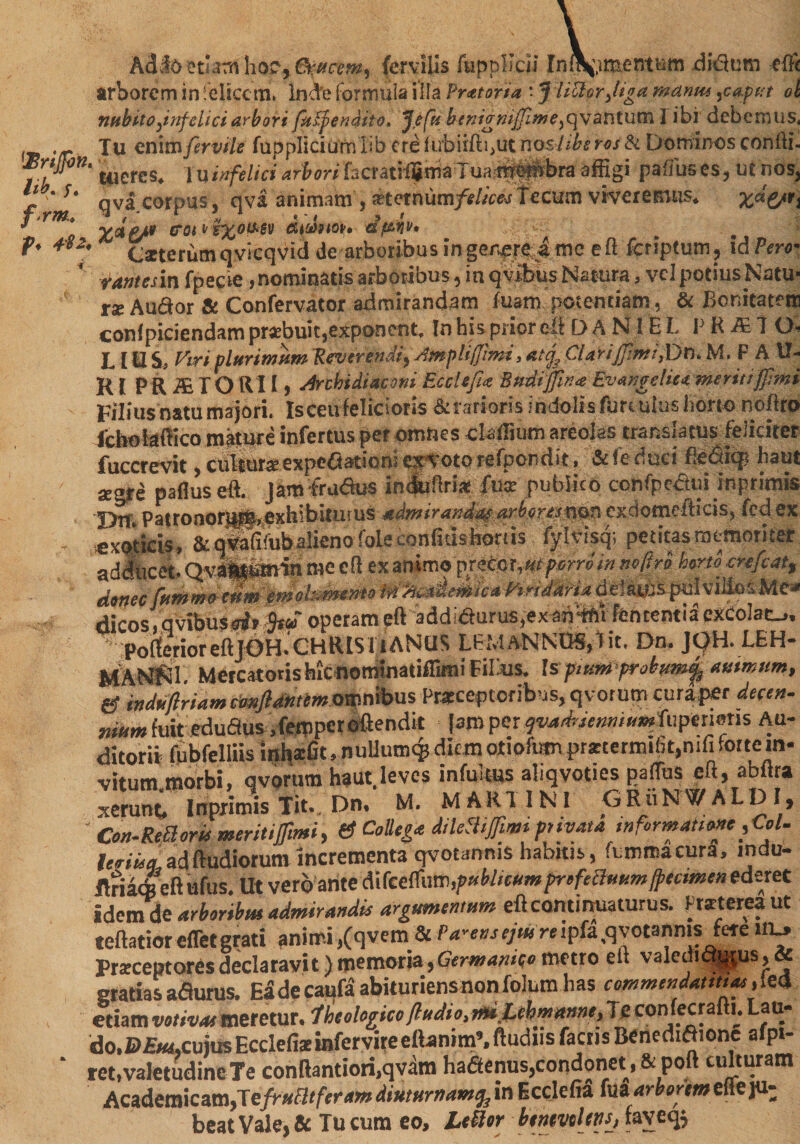 Adeò etiam hoc, Crucem, servilis supplicii Instrumentum dictum esse
arborem infelicem. Inde formula illa Prætoria : J lictor, liga manus, caput ob
nubito, infelici arbori suspendito. Jesu benignissime, qvantum Tibi debemus.
Tu enim servile supplicium lib erè subiisti, ut nos liberos & Dominos consti-
tueres. Tu infelici arbori sacratissima Tua membra affigi passus es, ut nos,
qva corpus, qva animam, æternùm felices Tecum viveremus. χάριν,
χάριν σοι ἔχομεν αἰώνιον. ἀμήν.
Brisson.
lib. 5.
form.
p. 482.
Cæterùm qvicqvid de arboribus in genere à me est scriptum, id Pero-
rantes in specie, nominatis arboribus, in qvibus Natura, vel potius Natu-
ræ Auctor & Conservator admirandam suam potentiam, & Bonitatem
conspiciendam præbuit, exponent. In his prior est DANIEL PRÆTO-
LIUS, Viri plurimùm Reverendi, Amplissimi, atq; Clarissimi, Dn. M. PAU-
RI PRÆTORII, Archidiaconi Ecclesiæ Budissinæ Evangelicæ meritissimi
Filius natu majori. Is ceu felicioris & rarioris indolis surculus horto nostro
scholastico maturè insertus per omnes classium areolas translatus feliciter
succrevit, culturæ expectationi ex voto respondit, & se duci flectiq; haut
ægrè passus est. Jam fructus industriæ suæ publico conspectui inprimis
Dn. Patronorum, exhibiturus admirandas arbores non ex domesticis, sed ex
exoticis, & qvasi sub alieno sole consitis hortis sylvisq; petitas memoriter
adducet. Qvantum in me est ex animo precor, ut porrò in nostro horto crescat,
donec summo cum emolumento in Academica Viridaria delatus pulvillos Me-
dicos, qvibus operam est additurus, ex animi sententia excolat.
Posterior est JOH. CHRISTIANUS LEMANNUS, Tit. Dn. JOH. LEH-
MANNI, Mercatoris hîc nominatissimi Filius. Is pium probumq; animum,
& industriam constantem omnibus Præceptoribus, qvorum cura per decen-
nium fuit eductus, semper ostendit. Jam per qvadriennium superioris Au-
ditorii subselliis inhæsit, nullumq; diem otiosum prætermisit, nisi forte in-
vitum morbi, qvorum haut leves insultus aliqvoties passus est, abstra
xerunt. Inprimis Tit. Dn. M. MARTINI GRüNWALDI,
Con-Rectoris meritissimi, & Collegæ dilectissimi privatâ informatione, Col-
legiisq; ad studiorum incrementa qvotannis habitis, summa curâ, indu-
striâq; est usus. Ut verò ante discessum, publicum profectuum specimen ederet
idem de arboribus admirandis argumentum est continuaturus. Præterea ut
testatior esset grati animi, (qvem & Parens ejus re ipsa qvotannis ferè in
Præceptores declaravit) memoria, Germanico metro est valedicturus, &
gratias acturus. Eâ de causâ abituriens non solùm has commendatitias, sed
etiam votivas meretur. Theologico studio, mi Lehmanne, Te consecrasti. Lau-
do. DEus, cujus Ecclesiæ inservire est animº, studiis sacris Benedictione aspi-
ret, valetudine Te constantiori, qvàm hactenus, condonet, & post culturam
Academicam, Te fructiferam diuturnamq; in Ecclesiâ suâ arborem esse ju-
beat Vale, & Tu cum eo, Lector benevolens, faveq;